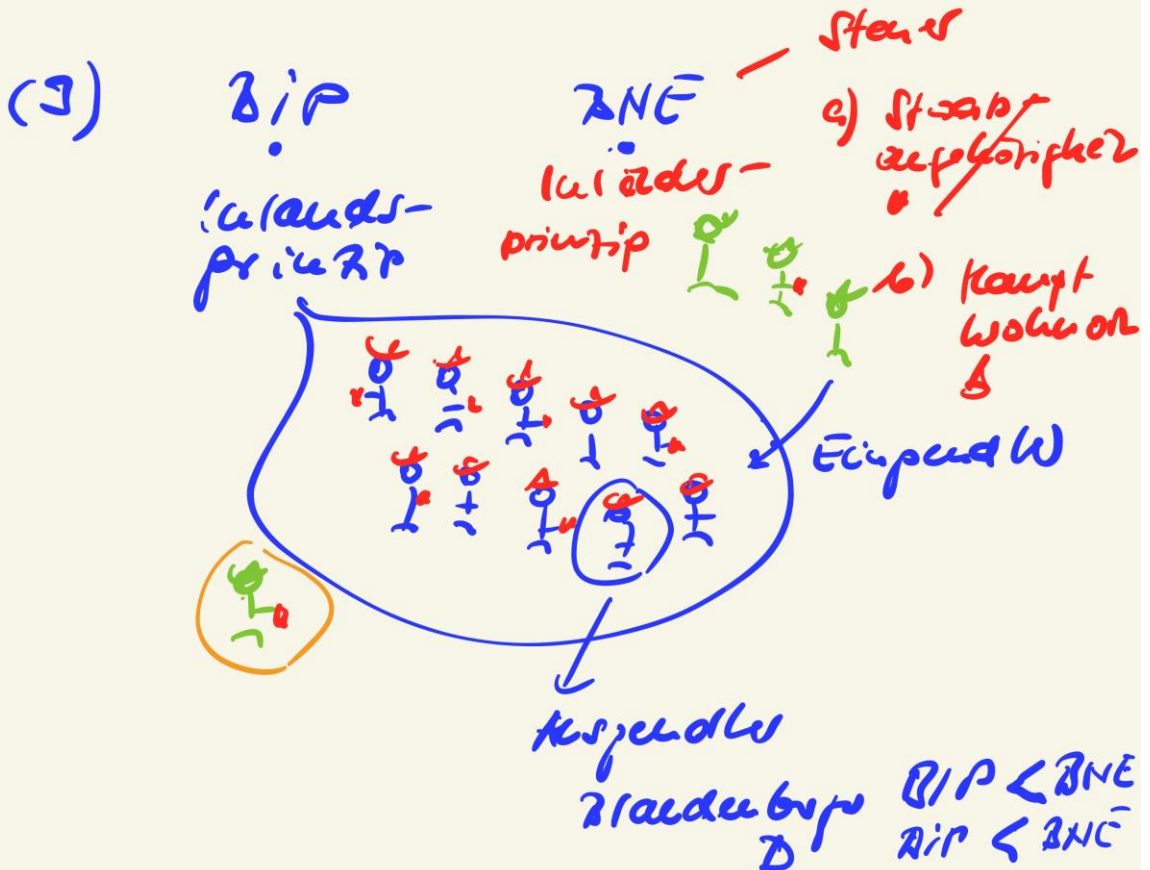 (3) BiP BNE
Steuer
inlands-
prinzip
Inländer-
prinzip
a) Staats-
angehörigkeit
b) Haupt
wohnort
Einpendler
Auspendler
Brandenburg BIP < BNE
D BiP < BNE